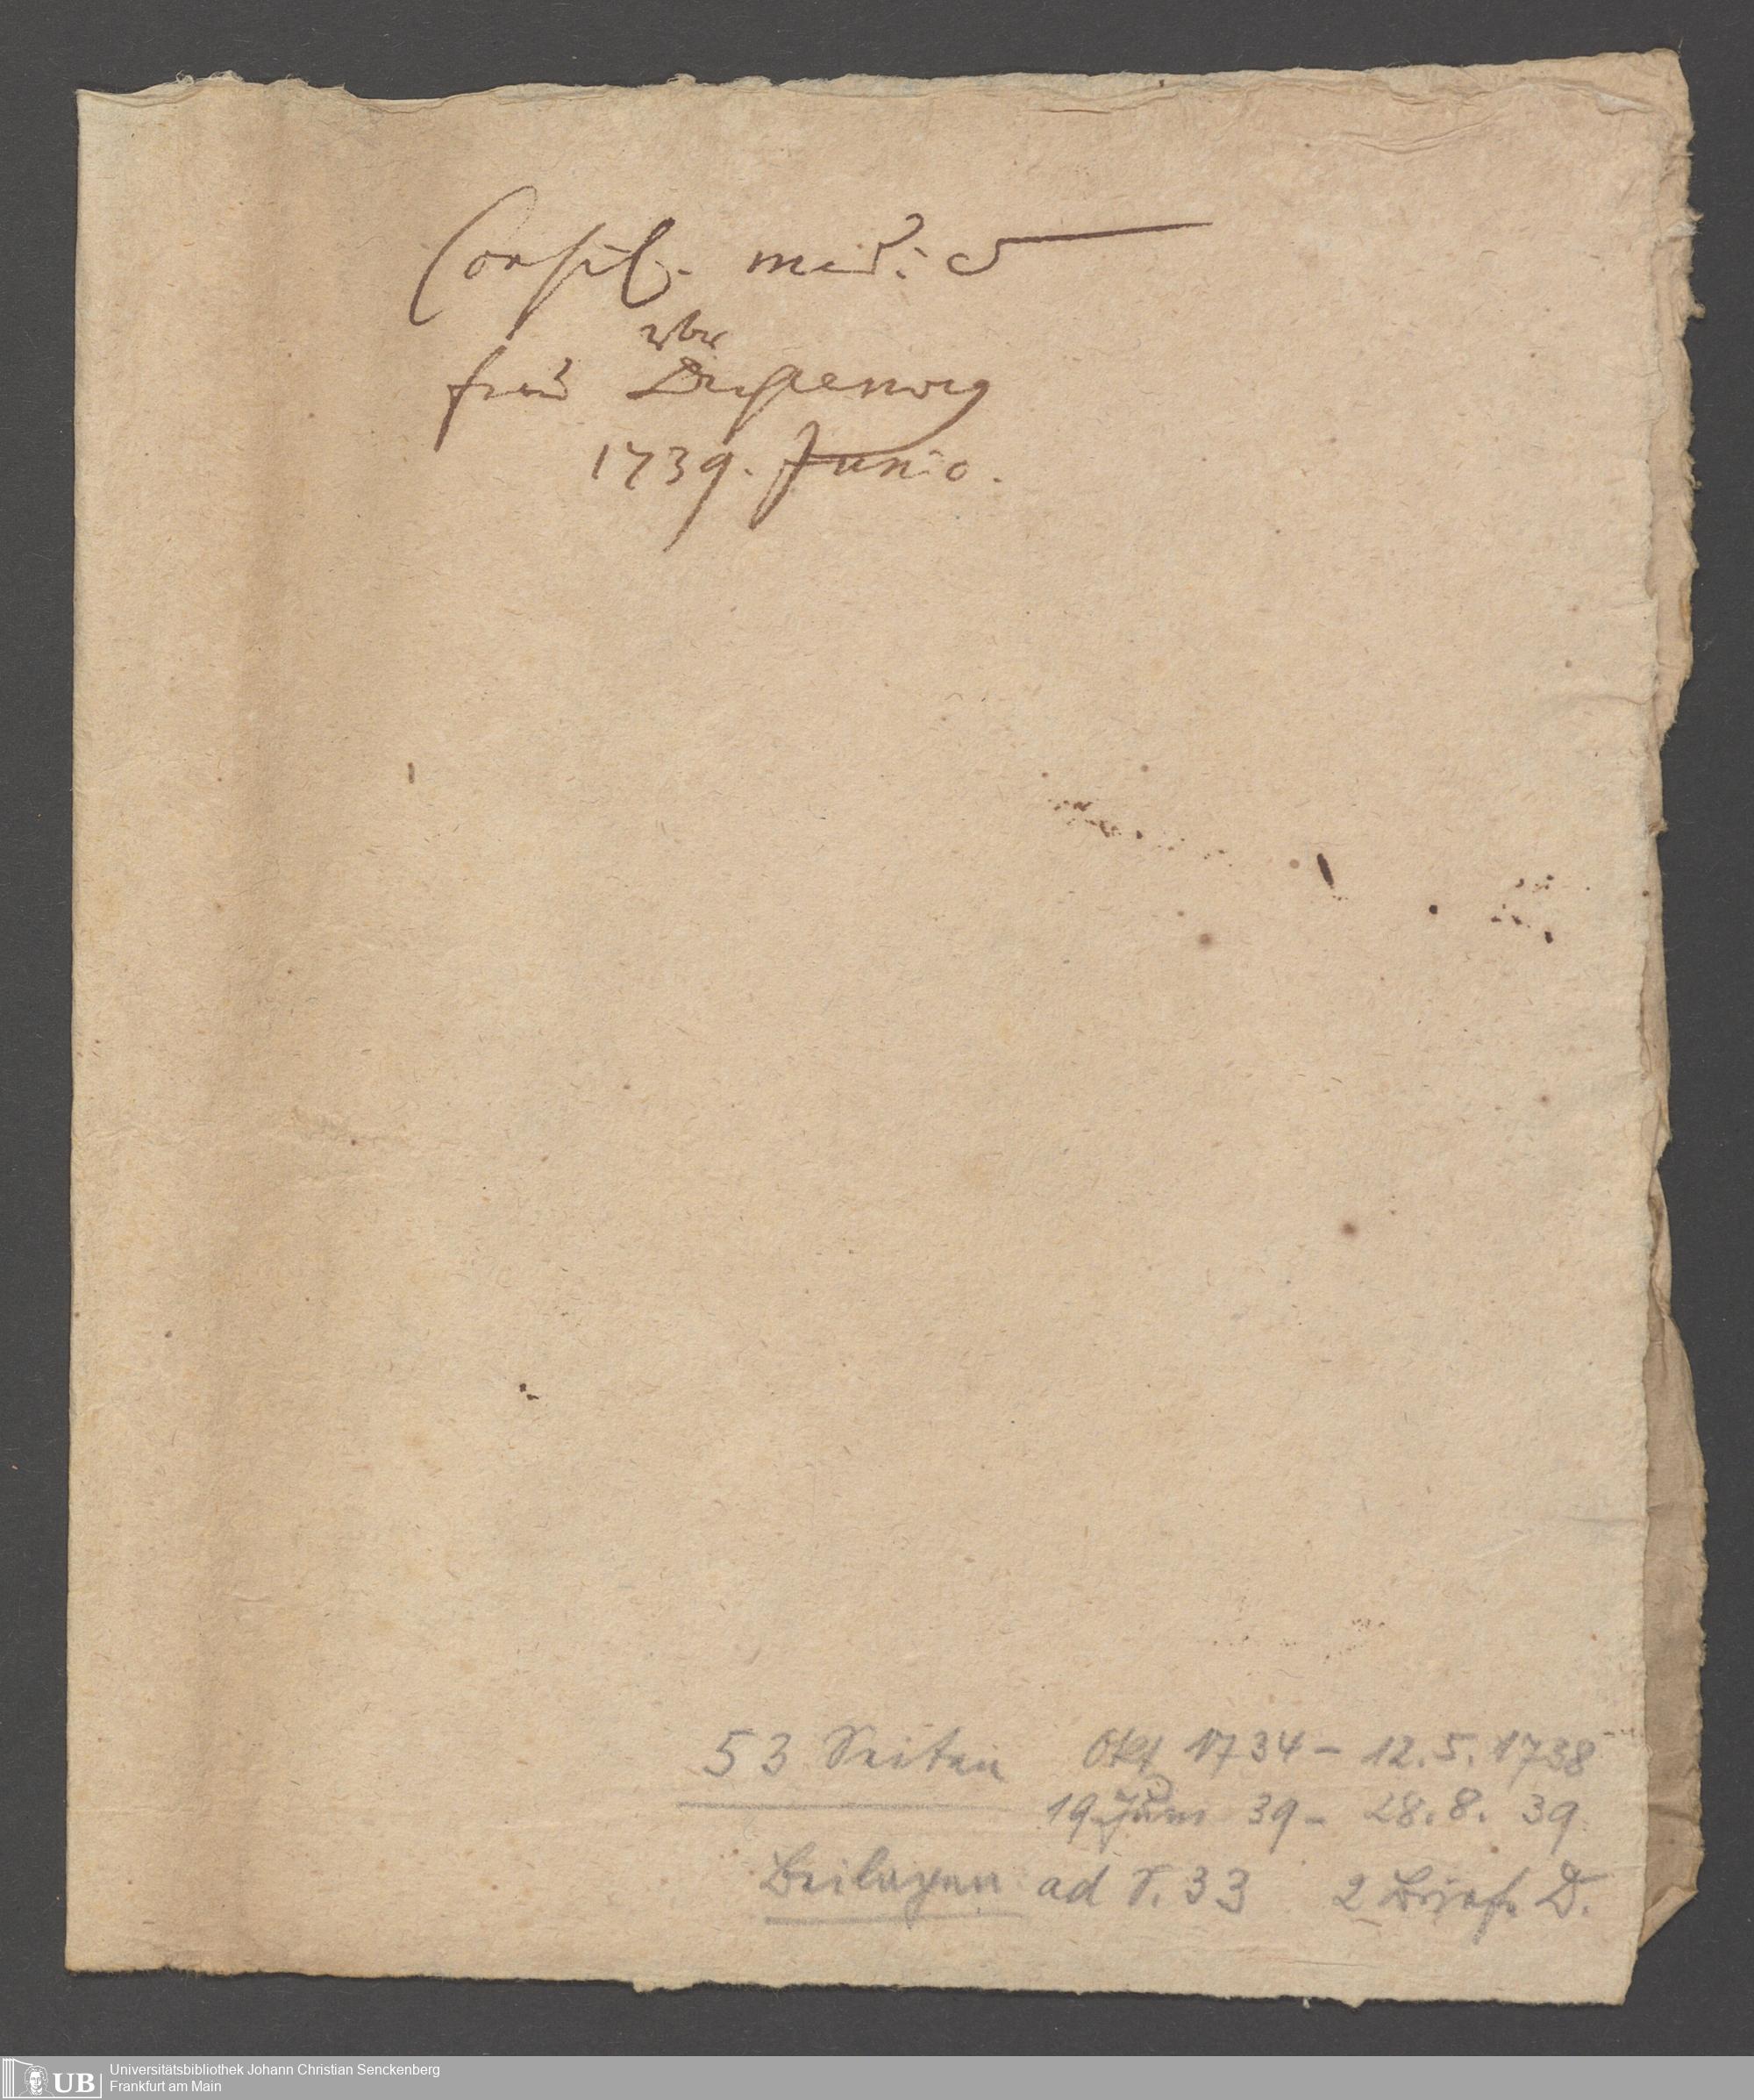 Consil. med:
über
frau
1739. Junio.
53 Seiten Okt 1734 – 12.5.1738
19. Juni 39 – 28.8. 39
Beilagen ad S. 33 2 Briefe D.
UB Universitätsbibliothek Johann Christian Senckenberg
Frankfurt am Main